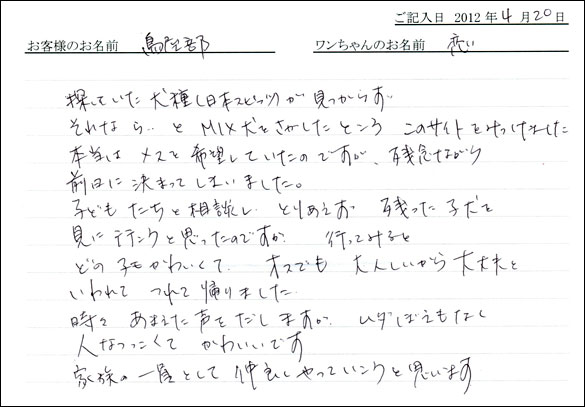 ご記入日 2012 年 4 月 20 日
お客様のお名前 鳥屋部 ワンちゃんのお名前 恋い
探していた犬種(日本スピッツ)が見つからず
それなら…と MIX犬をさがしたところ このサイトをみつけました
本当は メスを希望していたのですが、残念ながら
前日に決まってしまいました。
子どもたちと相談し とりあえず 残った子犬を
見に行こうと思ったのですが 行ってみると
どの子もかわいくて オスでも 大人しいから大丈夫と
いわれて つれて帰りました
時々 あまえた声をだしますが ムダぼえもなく
人なつっこくて かわいいです
家族の一員として 仲良くやっていこうと思います